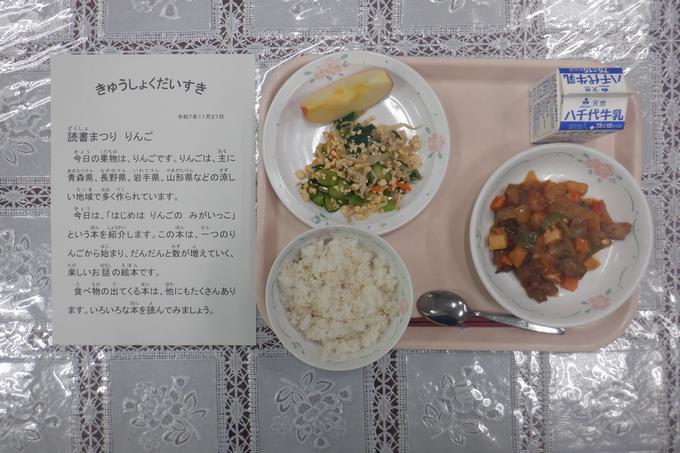 きゅうしょくだいすき
令和7年11月27日
読書まつり りんご
今日の果物は、りんごです。りんごは、主に
青森県、長野県、岩手県、山形県などの涼し
い地域で多く作られています。
今日は、「はじめは りんごの みがいっこ」
という本を紹介します。この本は、一つのり
んごから始まり、だんだんと数が増えていく、
楽しいお話の絵本です。
食べ物の出てくる本は、他にもたくさんあり
ます。いろいろな本を読んでみましょう。
八千代牛乳
天然
八千代牛乳